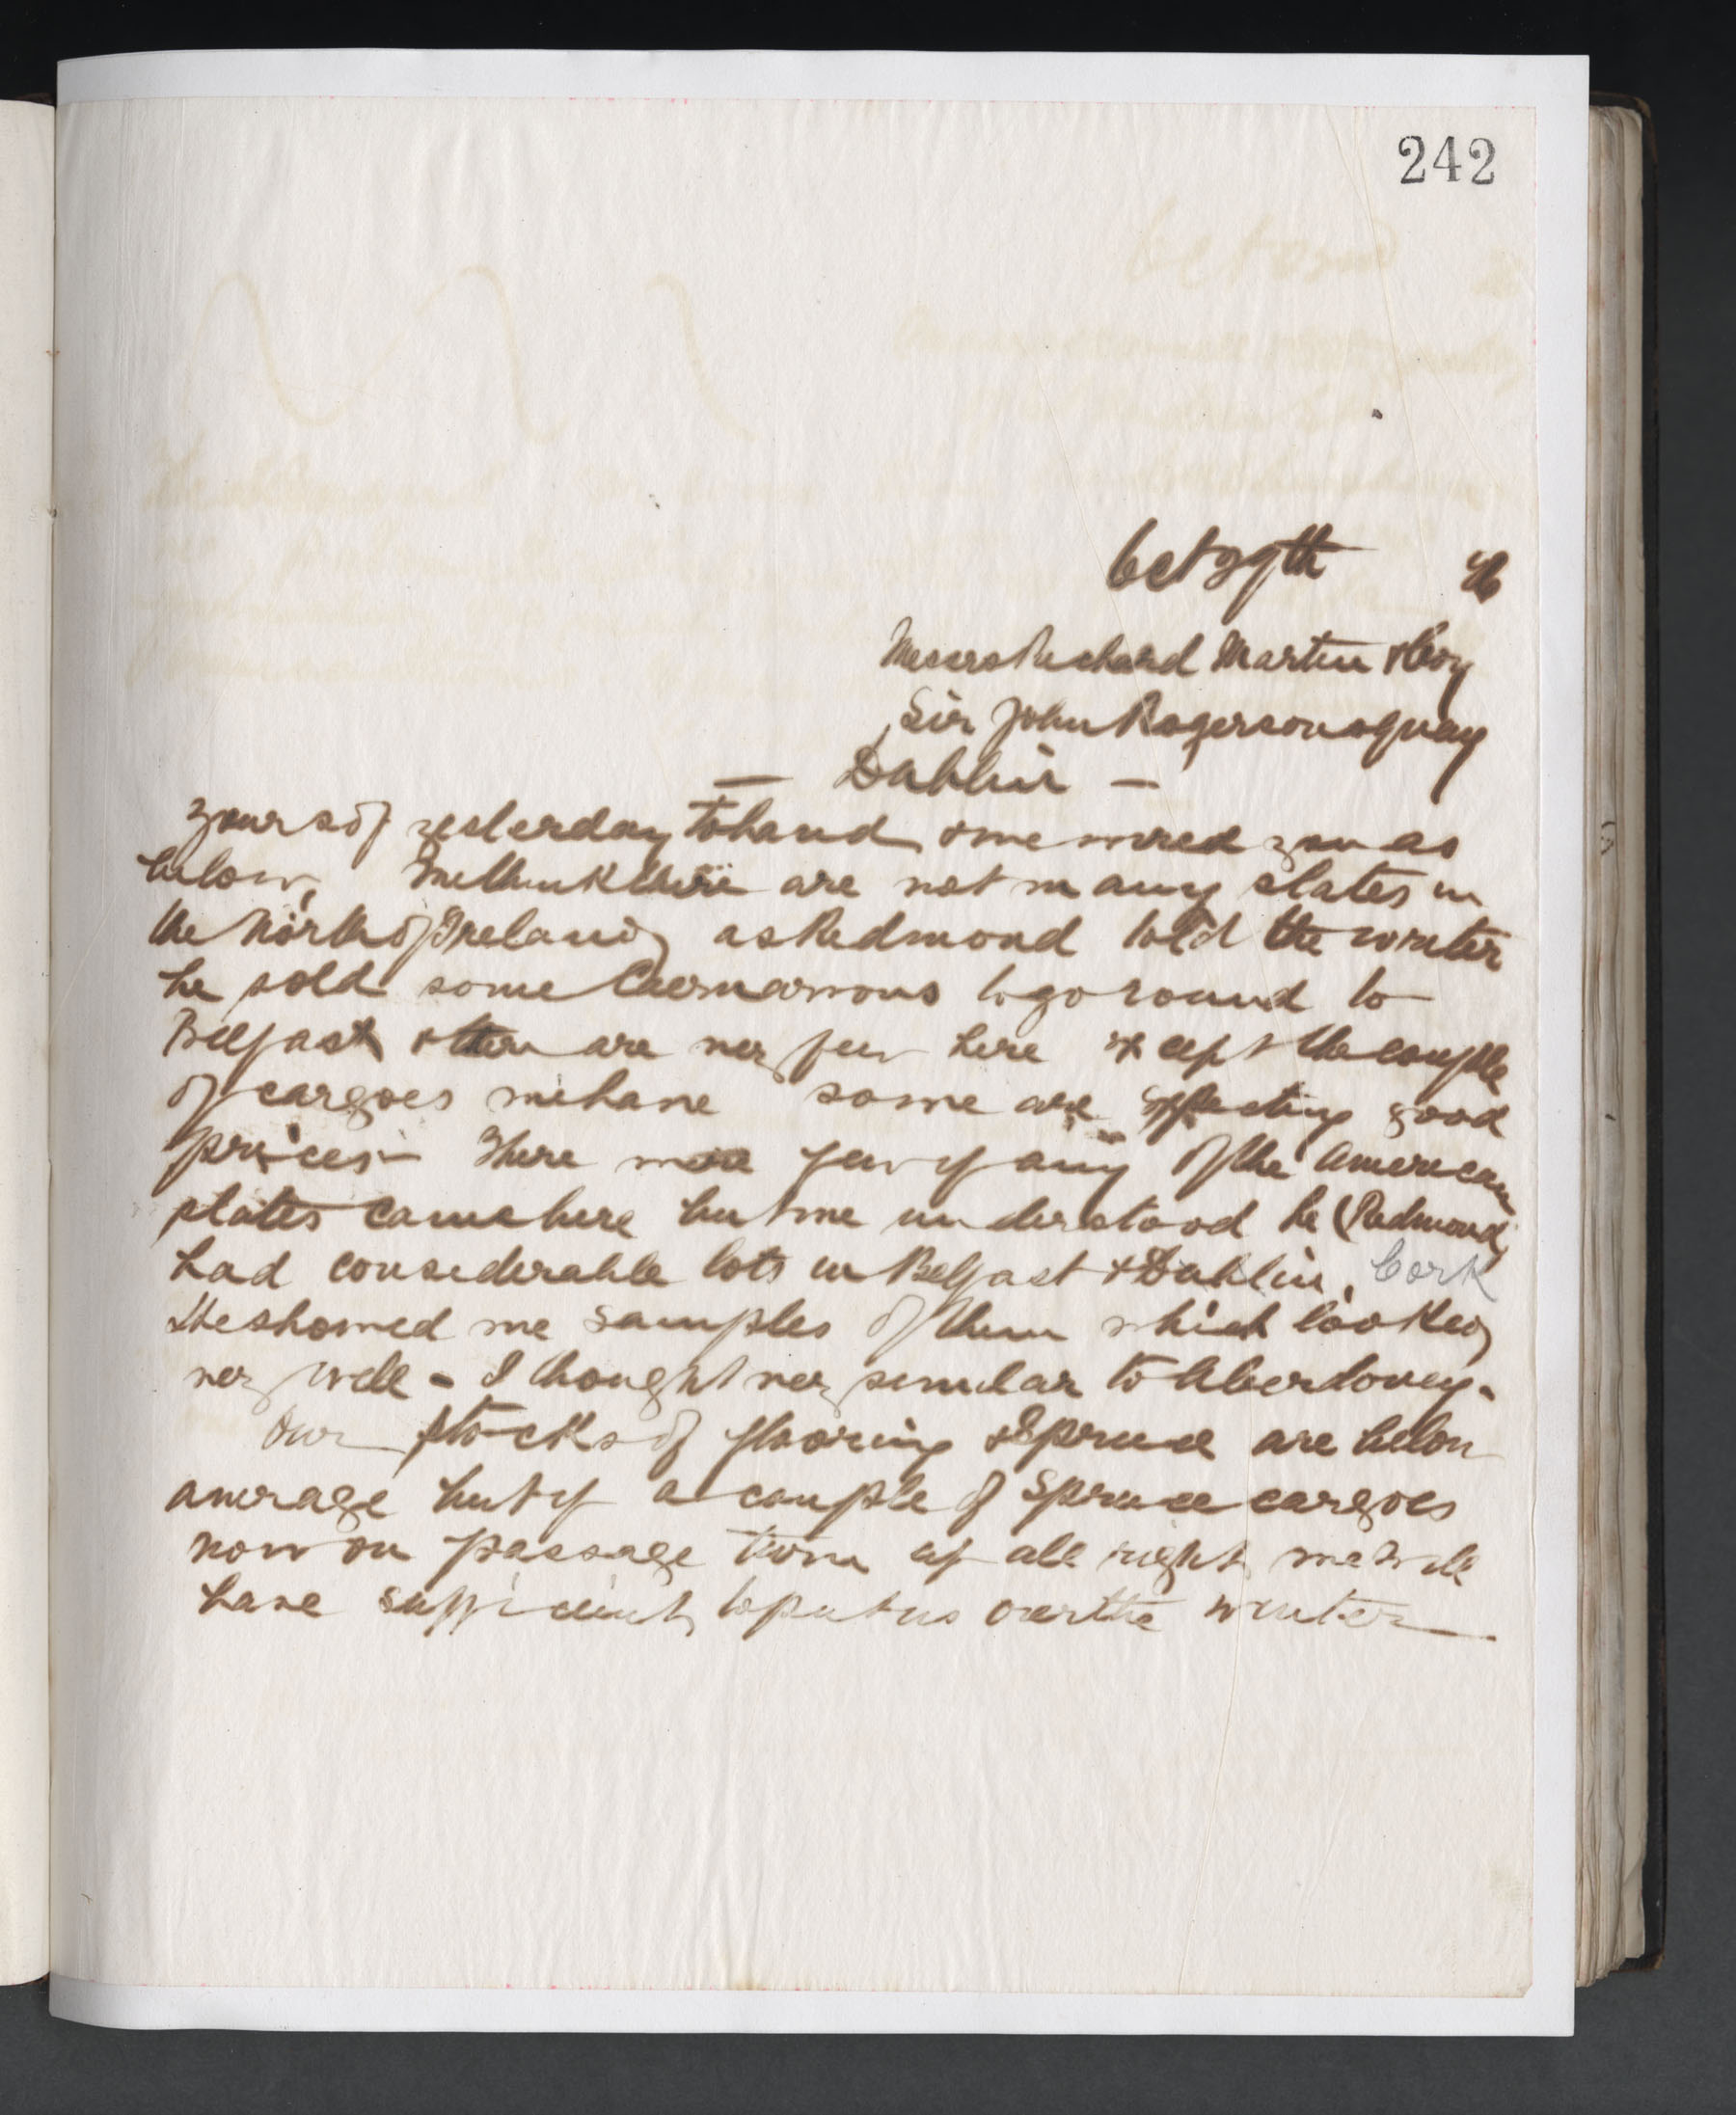 242
Oct 29th 96
Messrs Richard Martin & Coy
Sir John Rogersons Quay
— Dublin —
Yours of yesterday to hand & we wired you as
below, We think there are not many slates in
the North of Ireland, as Redmond told the writer
he sold some Caernarvons to go round to
Belfast & there are very few here except the couple
of cargoes we have some are expecting good
prices – There were few if any of the American
slates came here but we understood he (Redmond)
had considerable lots in Belfast & Dublin, Cork
He showed me samples of them which looked
very well - I thought very similar to Aberdovey.
Our stocks of flooring & Spruce are below
average but if a couple of Spruce cargoes
now on passage turn up all right we will
have sufficient to put us over the winter